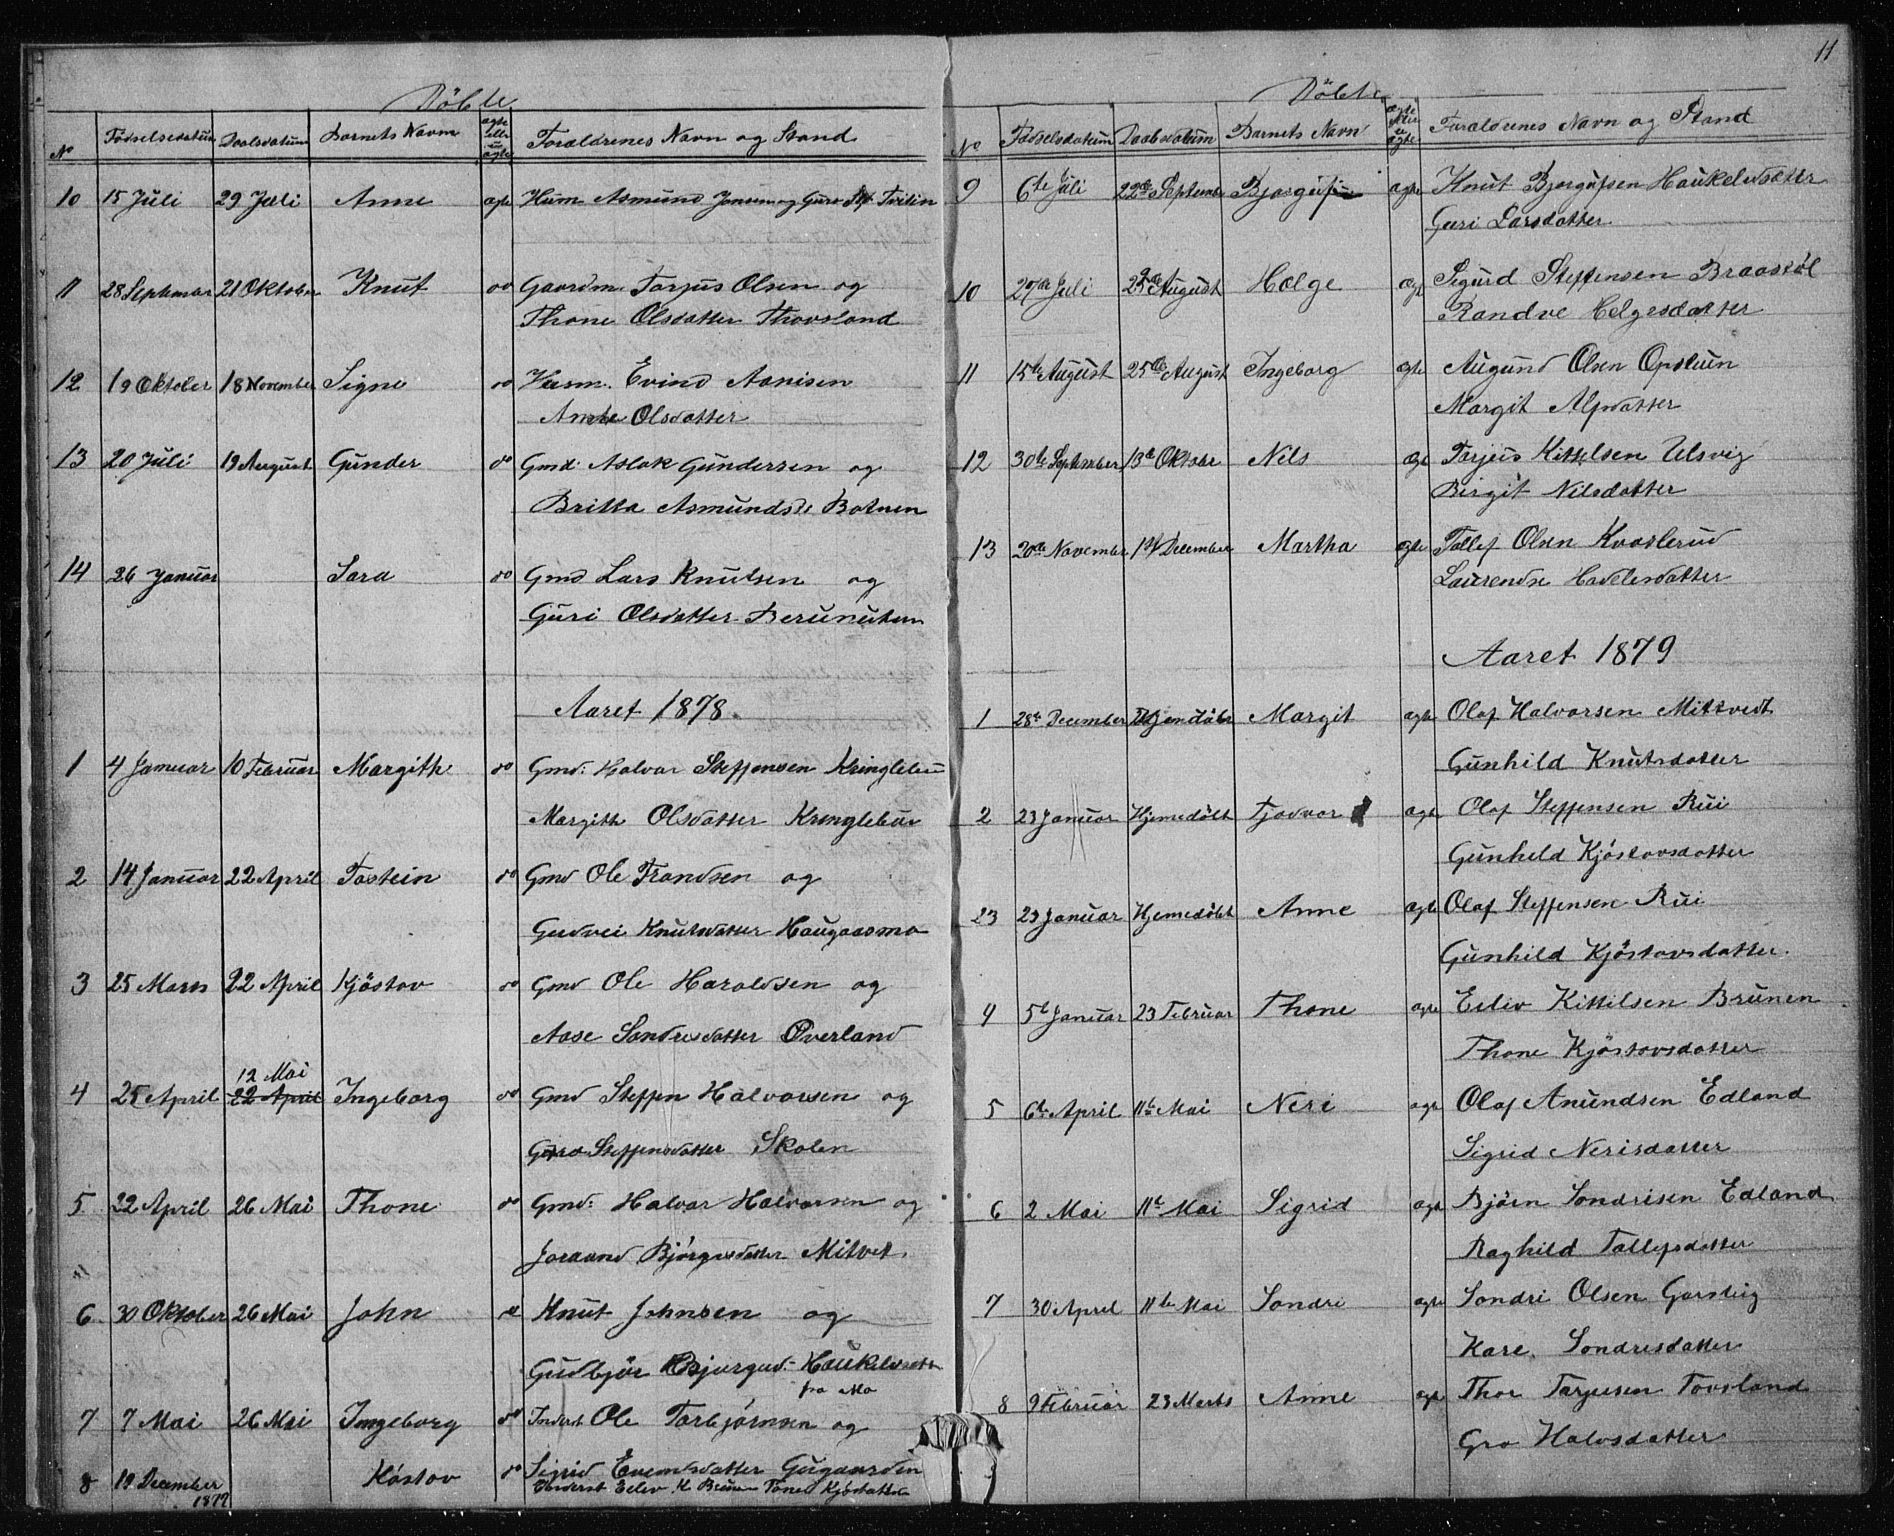 11
Döbte
No Fødselsdatum Daabsdatum Barnets Navn ægte eller uægte Forældrenes Navn og Stand
10 15 Juli 29 Juli Anne ægte Husm Asmund Jonsen og Guro
11 28 September 21 Oktober Knut do Gaardm. Torjus Olsen og
Thone Olsdatter Thovsland
12 19 Oktober 18 November Signe do Husm. Evind Aanisen
Olsdatter
13 20 Juli 19 August Gunder do Gmd. Aslak Gundersen og
Britta Asmundsdt Botnen
14 26 Januar Sara do Gmd Lars Knutsen og
Guri Olsdatter
Aaret 1878.
1 4 Januar 10 Februar Margith do Gmd: Halvor Steffensen Kringlebu
Margith Olsdatter Kringlebu
2 14 Januar 22 April Tostein do Gmd Ole Trondsen og
Gudvei Knutsdatter Haugaasmo
3 25 Marts 22 April Kjøstov do Gmd Ole Haroldsen og
Aase Sondresdatter Øverland
12 Mai
4 25 April 22 April Ingeborg do Gmd Steffen Halvorsen og
Guro Steffensdatter Skolen
5 22 April 26 Mai Thone do Gmd: Halvor Halvorsen og
Joraand Bjørgusdatter Mitvet.
6 30 Oktober 26 Mai John do Knut Johnsen og
Gudbjør Bjorgud. Haukelidsæter
fra Mo
7 7 Mai 26 Mai Ingeborg do Inderst Ole Torbjørnsen og
Sigrid
8 19 December Køstov do Inderst Eilev K Brunen Tone Kjøstdatter
1877
Döbte
No Fødselsdatum Daabsdatum Barnets Navn ægte eller uægte Forældrenes Navn og Stand
9 6te Juli 22de September Bjorguf ægte Knut Bjorgufsen Haukelidsæter
Guri Larsdatter
10 20de Juli 25de August Hælge ægte Sigurd Steffensen Braastøl
Randve Helgesdatter
11 15de August 25de August Ingeborg ægte Augund Olsen Opstuen
Margit Alfsdatter
12 30te September 13de Oktober Nils ægte Torjus Kittelsen Ulsvig
Birgit Nilsdatter
13 20de November 1st December Martha ægte Tollef Olsen Kvaslerud
Laurendse
Aaret 1879
1 28de December Hjemdöbt Margit ægte Olaf Halvorsen Mittvedt
Gunhild Knutsdatter
2 23 Januar Hjemedöbt Tjodvor ægte Olaf Steffensen Rui
Gunhild Kjöstovsdatter
23 23 Januar Hjemedöbt Anne ægte Olaf Steffensen Rui
Gunhild Kjöstovsdatter.
4 5te Januar 23 Februar Thone ægte Eiliv Kittilsen Brunen
Thone Kjöstovsdatter
5 6te April 11te Mai Neri ægte Olaf Anundsen Edland
Sigrid Nerisdatter
6 2 Mai 11te Mai Sigrid ægte Bjørn Sondrisen Edland
Raghild Tollefsdatter
7 30 April 11te Mai Sondri ægte Sondri Olsen
Kare. Sondresdatter
8 9 Februar 23 Marts Anne ægte Thor Torjusen Tovsland
Gro Halvsdatter